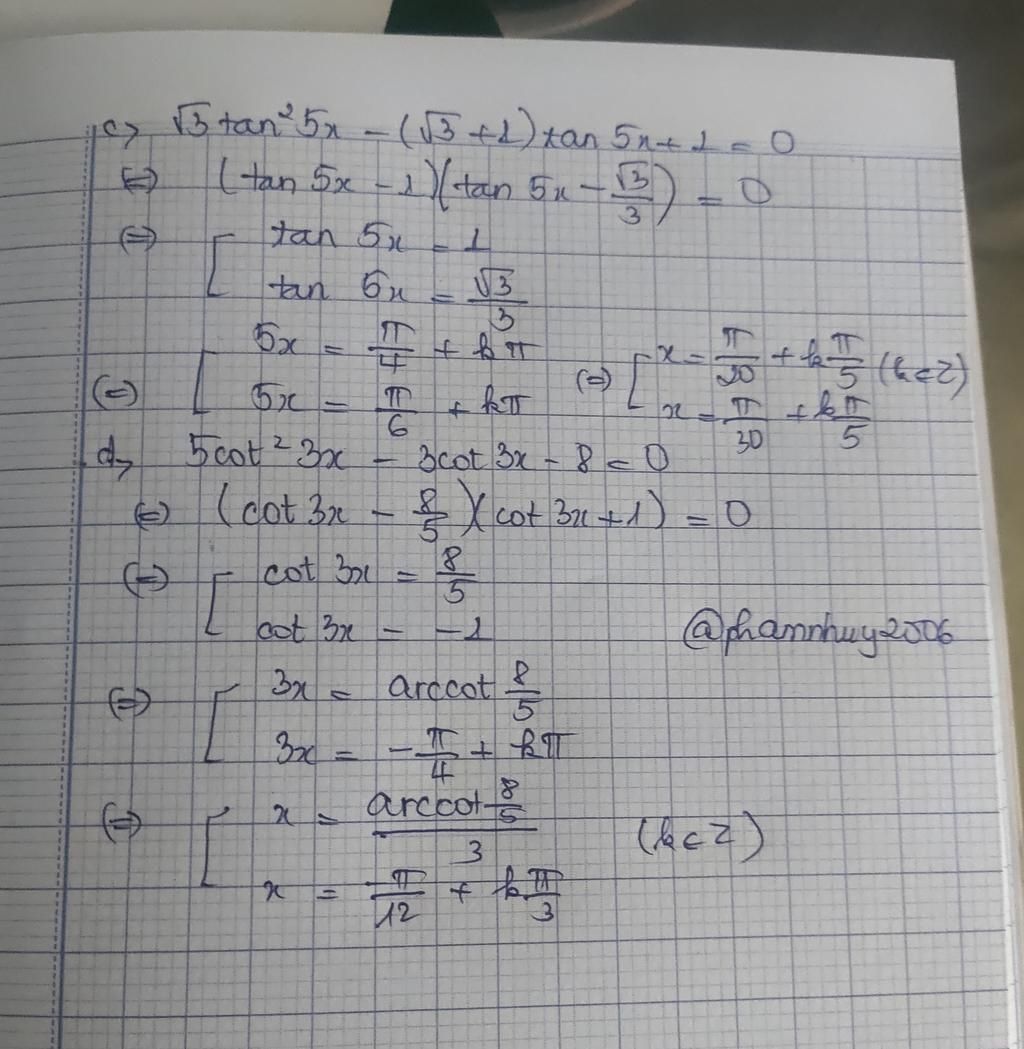 c> √3 tan²5x - (√3 + 1) tan 5x + 1 = 0
⇔ (tan 5x - 1)(tan 5x - √3/3) = 0
⇔ [ tan 5x = 1
tan 5x = √3/3
⇔ [ 5x = π/4 + kπ ⇔ [ x = π/20 + kπ/5 (k∈Z)
5x = π/6 + kπ x = π/30 + kπ/5
d> 5cot²3x - 3cot3x - 8 = 0
⇔ (cot 3x - 8/5)(cot 3x + 1) = 0
⇔ [ cot 3x = 8/5
cot 3x = -1
@phamnhuy2006
⇔ [ 3x = arccot 8/5
3x = -π/4 + kπ
⇔ [ x = arccot 8/5 / 3 (k∈Z)
x = -π/12 + kπ/3